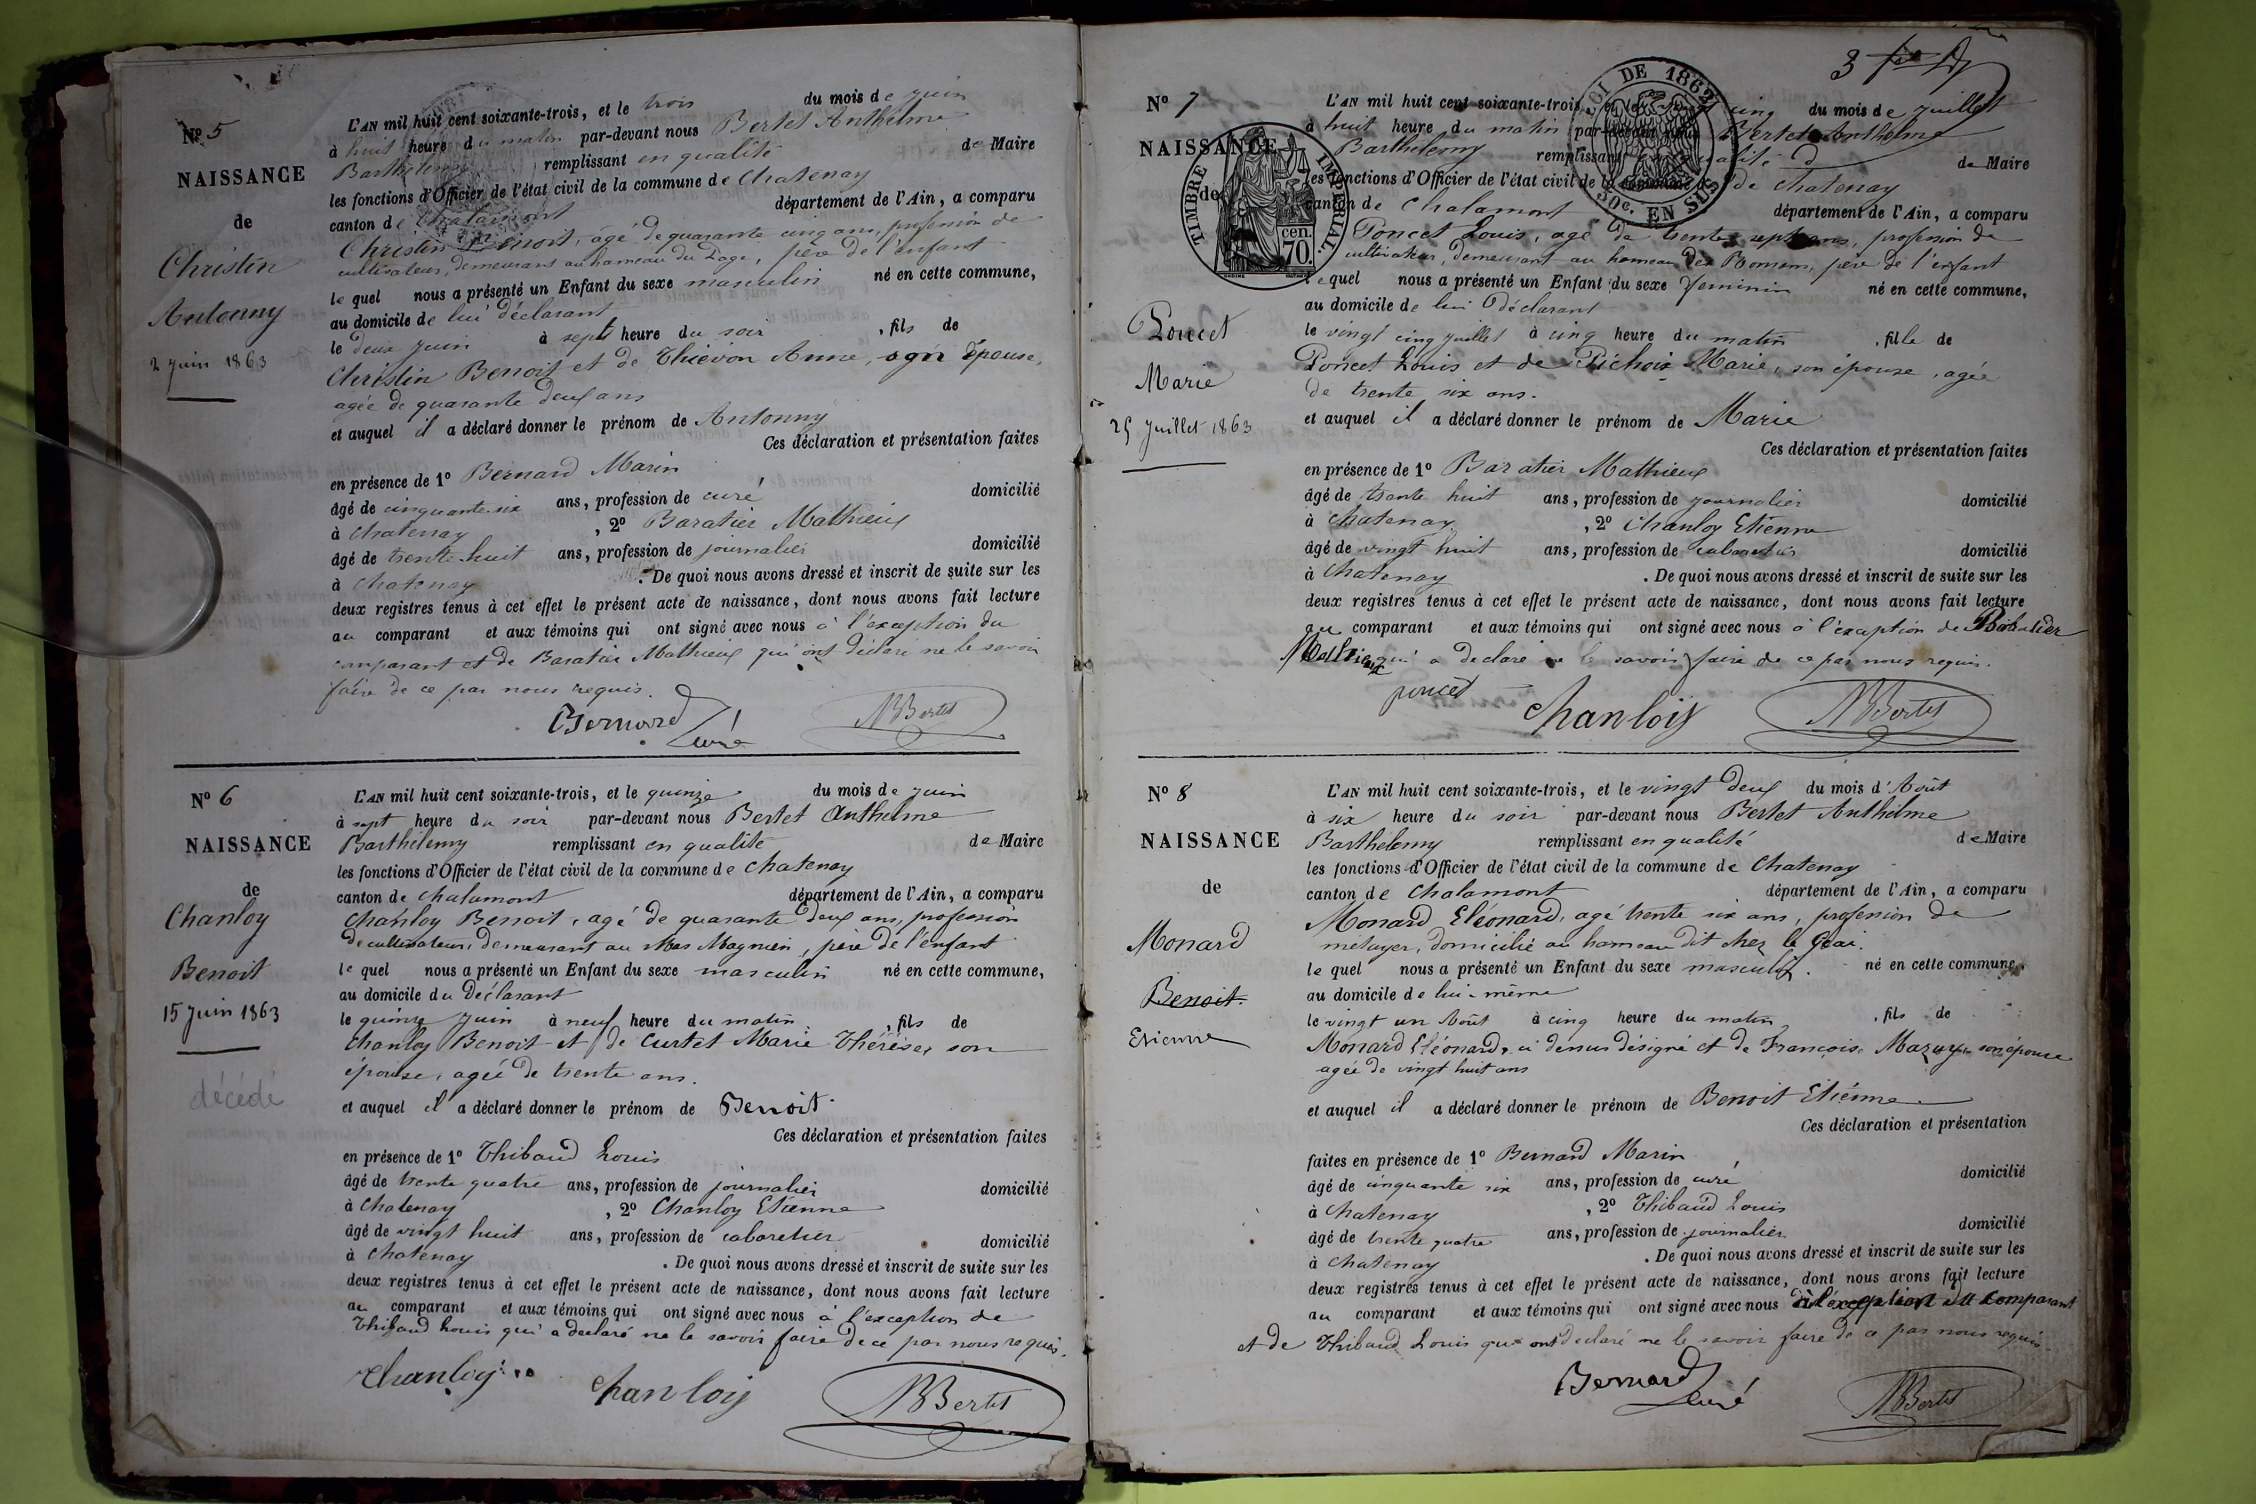 Nº 5
NAISSANCE
de
Christin
Antonny
2 juin 1863
L'AN mil huit cent soixante-trois, et le trois du mois de juin
à huit heure du matin par-devant nous Bertet Anthelme
Barthélemy remplissant en qualité de Maire
les fonctions d'Officier de l'état civil de la commune de Chatenay
canton de Chalamont département de l'Ain, a comparu
Christin Benoit, âgé de quarante cinq ans, profession de
cultivateur, demeurant au hameau du Page, père de l'enfant
le quel nous a présenté un Enfant du sexe masculin né en cette commune,
au domicile de lui déclarant
le deux juin à sept heure du soir, fils de
Christin Benoit et de Thievon Anne, son épouse,
agée de quarante deux ans
et auquel il a déclaré donner le prénom de Antonny
Ces déclaration et présentation faites
en présence de 1º Bernard Marin
âgé de cinquante six ans, profession de curé domicilié
à Chatenay, 2º Baratier Mathieux
âgé de trente huit ans, profession de journalier domicilié
à Chatenay. De quoi nous avons dressé et inscrit de suite sur les
deux registres tenus à cet effet le présent acte de naissance, dont nous avons fait lecture
au comparant et aux témoins qui ont signé avec nous à l'exception du
comparant et de Baratier Mathieux qui ont déclaré ne le savoir
faire de ce par nous requis.
Bernard curé ABBertet
Nº 6
NAISSANCE
de
Chanloy
Benoit
15 juin 1863
décédé
L'AN mil huit cent soixante-trois, et le quinze du mois de juin
à sept heure du soir par-devant nous Bertet Anthelme
Barthélemy remplissant en qualité de Maire
les fonctions d'Officier de l'état civil de la commune de Chatenay
canton de Chalamont département de l'Ain, a comparu
Chanloy Benoit, agé de quarante deux ans, profession
de cultivateur, demeurant au Mas Magnien, père de l'enfant
le quel nous a présenté un Enfant du sexe masculin né en cette commune,
au domicile du déclarant
le quinze juin à neuf heure du matin, fils de
Chanloy Benoit et de Curtet Marie Thérèse, son
épouse, agée de trente ans.
et auquel il a déclaré donner le prénom de Benoit
Ces déclaration et présentation faites
en présence de 1º Thibaud Louis
âgé de trente quatre ans, profession de journalier domicilié
à Chatenay, 2º Chanloy Etienne
âgé de vingt huit ans, profession de cabaretier domicilié
à Chatenay. De quoi nous avons dressé et inscrit de suite sur les
deux registres tenus à cet effet le présent acte de naissance, dont nous avons fait lecture
au comparant et aux témoins qui ont signé avec nous à l'exception de
Thibaud Louis qui a declaré ne le savoir faire de ce par nous requis.
Chanloy Chanloiy ABBertet
3
Nº 7
NAISSANCE
de
Poncet
Marie
25 juillet 1863
TIMBRE IMPÉRIAL
70 cen.
LOI DE 1862
50c. EN SUS
L'AN mil huit cent soixante-trois, et le vingt cinq du mois de juillet
à huit heure du matin par-devant nous Bertet Anthelme
Barthélemy remplissant en qualité d de Maire
les fonctions d'Officier de l'état civil de la commune de Chatenay
canton de Chalamont département de l'Ain, a comparu
Poncet Louis, agé de trente sept ans, profession de
cultivateur, demeurant au hameau des père de l'enfant
le quel nous a présenté un Enfant du sexe feminin né en cette commune,
au domicile de lui déclarant
le vingt cinq juillet à cinq heure du matin, fille de
Poncet Louis et de Pichoix Marie, son épouse, agée
de trente six ans.
et auquel il a déclaré donner le prénom de Marie
Ces déclaration et présentation faites
en présence de 1º Baratier Mathieux
âgé de trente huit ans, profession de journalier domicilié
à Chatenay, 2º Chanloy Etienne
âgé de vingt huit ans, profession de cabaretier domicilié
à Chatenay. De quoi nous avons dressé et inscrit de suite sur les
deux registres tenus à cet effet le présent acte de naissance, dont nous avons fait lecture
au comparant et aux témoins qui ont signé avec nous à l'exception de Baratier
Mathieux qui a declaré ne le savoir faire de ce par nous requis.
poncet Chanloiy ABBertet
Nº 8
NAISSANCE
de
Monard
Benoit.
Etienne
L'AN mil huit cent soixante-trois, et le vingt deux du mois d'Août
à six heure du soir par-devant nous Bertet Anthelme
Barthélemy remplissant en qualité de Maire
les fonctions d'Officier de l'état civil de la commune de Chatenay
canton de Chalamont département de l'Ain, a comparu
Monard Eléonard, agé trente six ans, profession de
métayer, domicilié au hameau dit chez le Geai.
le quel nous a présenté un Enfant du sexe masculin. né en cette commune,
au domicile de lui-même
le vingt un Août à cinq heure du matin, fils de
Monard Eléonard, ci dessus désigné et de Francoise Mazuy son épouse
agée de vingt huit ans
et auquel il a déclaré donner le prénom de Benoit Etienne
Ces déclaration et présentation
faites en présence de 1º Bernard Marin
âgé de cinquante six ans, profession de curé domicilié
à Chatenay, 2º Thibaud Louis
âgé de trente quatre ans, profession de journalier domicilié
à Chatenay. De quoi nous avons dressé et inscrit de suite sur les
deux registres tenus à cet effet le présent acte de naissance, dont nous avons fait lecture
au comparant et aux témoins qui ont signé avec nous à l'exception du comparant
et de Thibaud Louis qui ont declaré ne le savoir faire de ce par nous requis
Bernard curé ABBertet